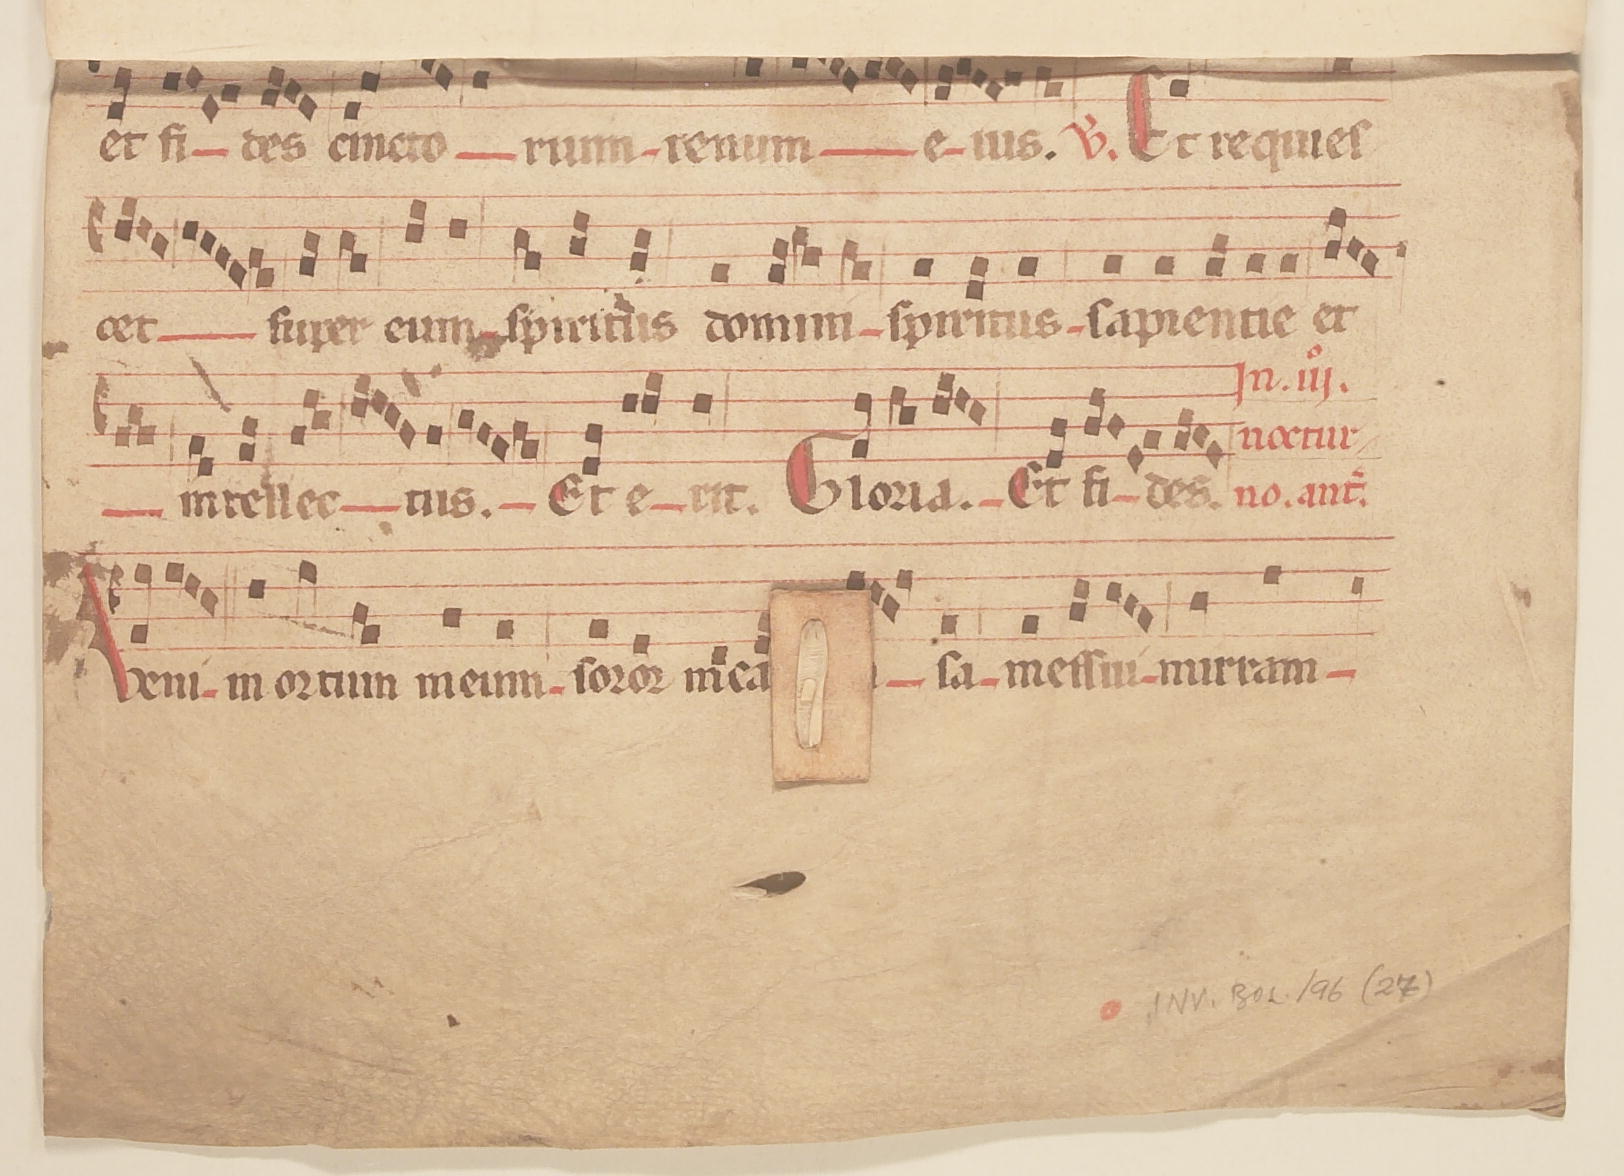 et fi des cincto rum renum e ius. V. Et requies
cet super eum spiritus domini spiritus sapientie et
In. iij.
noctur
intellec tus. Et e rit. Gloria. Et fi des. no. ant.
Veni in ortum meum soror mea sa messui mirram
INV. BOL. /96 (27)